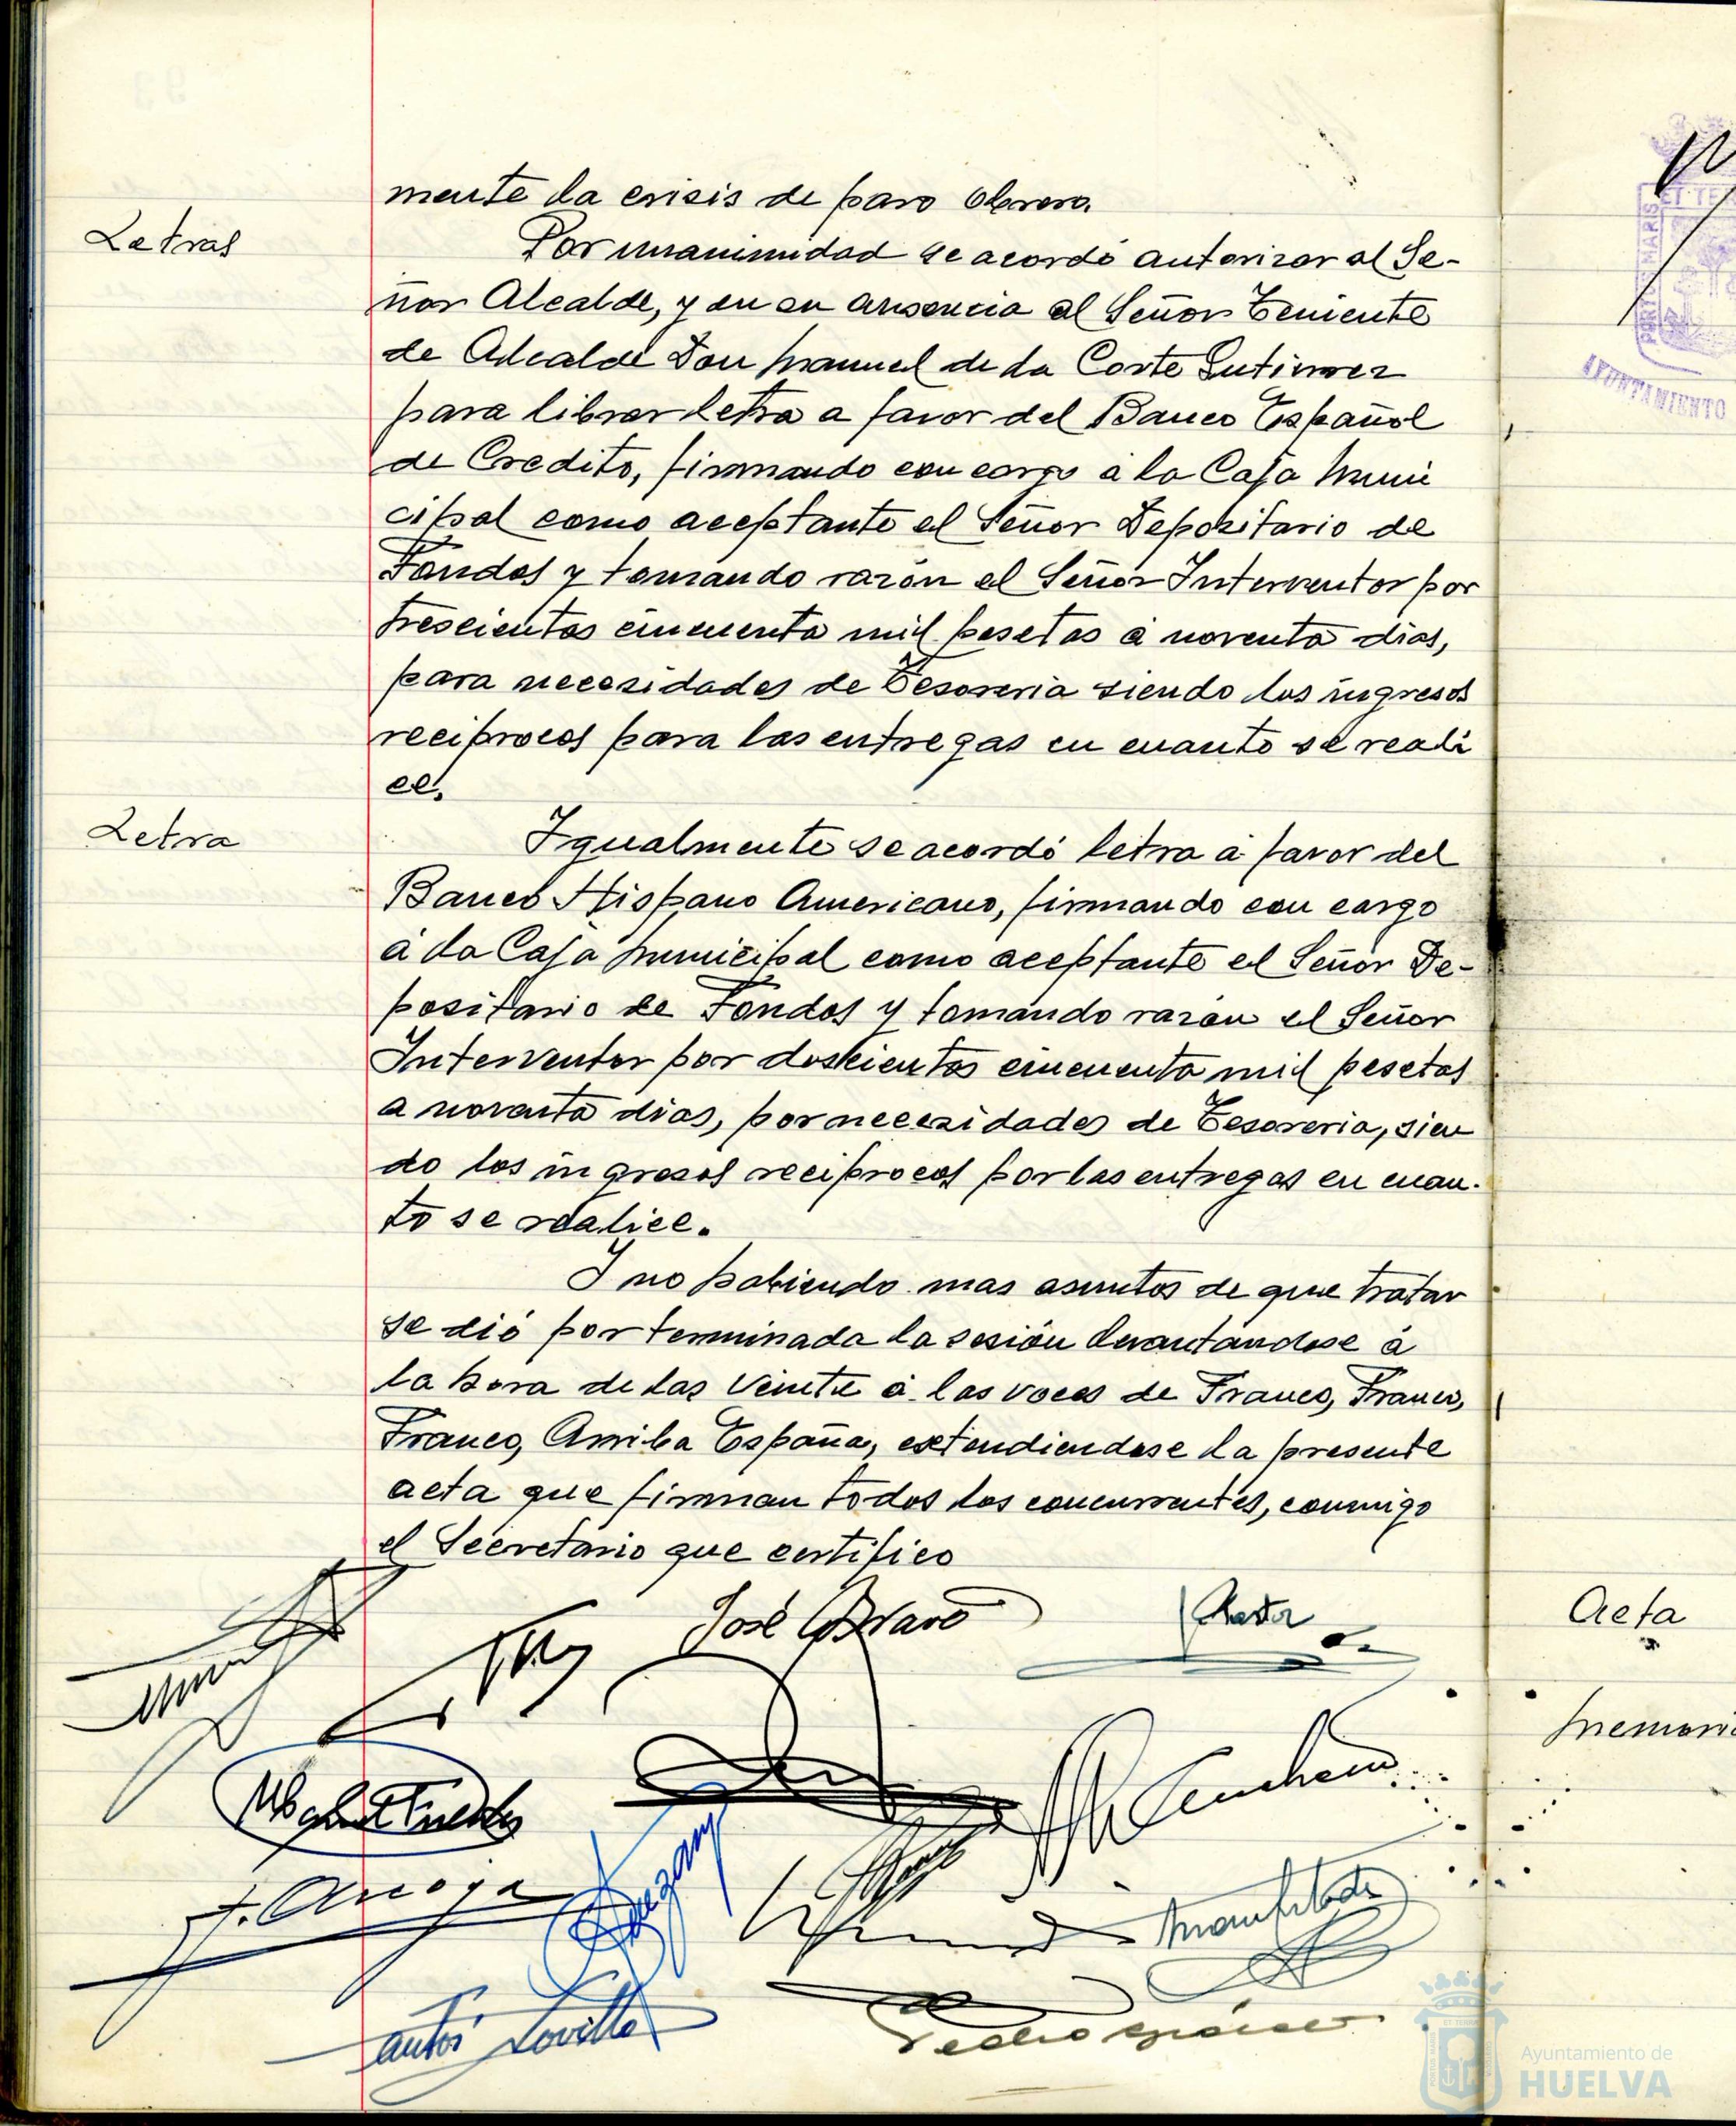 mente la crisis de paro obrero.
Letras
Por unanimidad se acordó autorizar al Se-
ñor Alcalde, y en su ausencia al Señor Teniente
de Alcalde Don Manuel de la Corte Gutierrez
para librar letra a favor del Banco Español
de Credito, firmando con cargo a la Caja Muni
cipal como aceptante el Señor Depositario de
Fondos y tomando razón el Señor Interventor por
trescientas cincuenta mil pesetas a noventa dias,
para necesidades de Tesoreria siendo los ingresos
reciprocos para las entregas en cuanto se reali
ce.
Letra
Igualmente se acordó letra a favor del
Banco Hispano Americano, firmando con cargo
a la Caja Municipal como aceptante el Señor De-
positario de Fondos y tomando razón el Señor
Interventor por doscientas cincuenta mil pesetas
a noventa dias, por necesidades de Tesoreria, sien
do los ingresos reciprocos por las entregas en cuan-
to se realice.
Y no habiendo mas asuntos de que tratar
se dió por terminada la sesión levantándose a
la hora de las veinte a las voces de Franco, Franco,
Franco, Arriba España, extendiendose la presente
acta que firman todos los concurrentes, conmigo
el Secretario que certifico
José
J. Arroya
Pedro
PORTUS MARIS ET TE
AYUNTAMIENTO
Acta
Memori
Ayuntamiento de
HUELVA